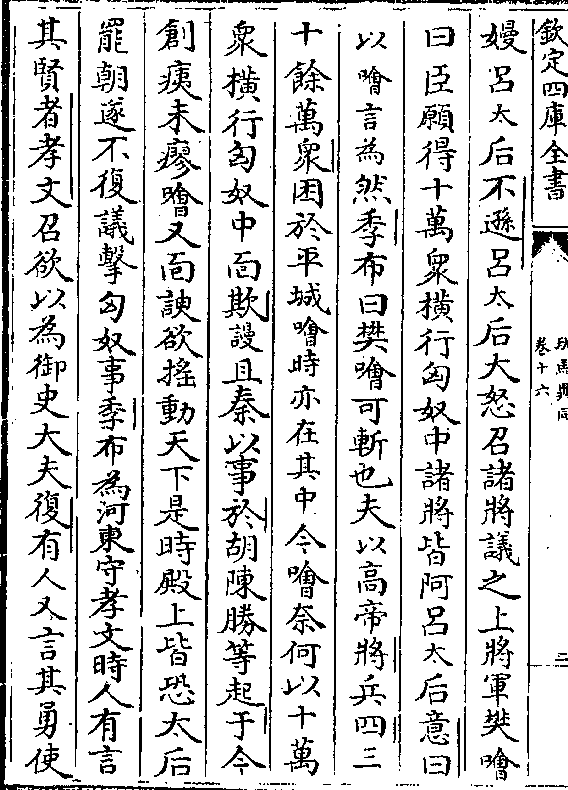 欽定四庫全書
卷十六
二
嫚吕太后不遜吕太后大怒召諸將議之上將軍樊噲
曰臣願得十萬衆横行匈奴中諸將皆阿吕太后意曰
以噲言為然季布曰樊噲可斬也夫以高帝將兵四三
十餘萬衆困於平城噲時亦在其中今噲奈何以十萬
衆横行匈奴中面欺謾且秦以事於胡陳勝等起于今
創痍未瘳噲又面諛欲摇動天下是時殿上皆恐太后
罷朝遂不復議擊匈奴事季布為河東守孝文時人有言
其賢者孝文召欲以為御史大夫復有人又言其勇使